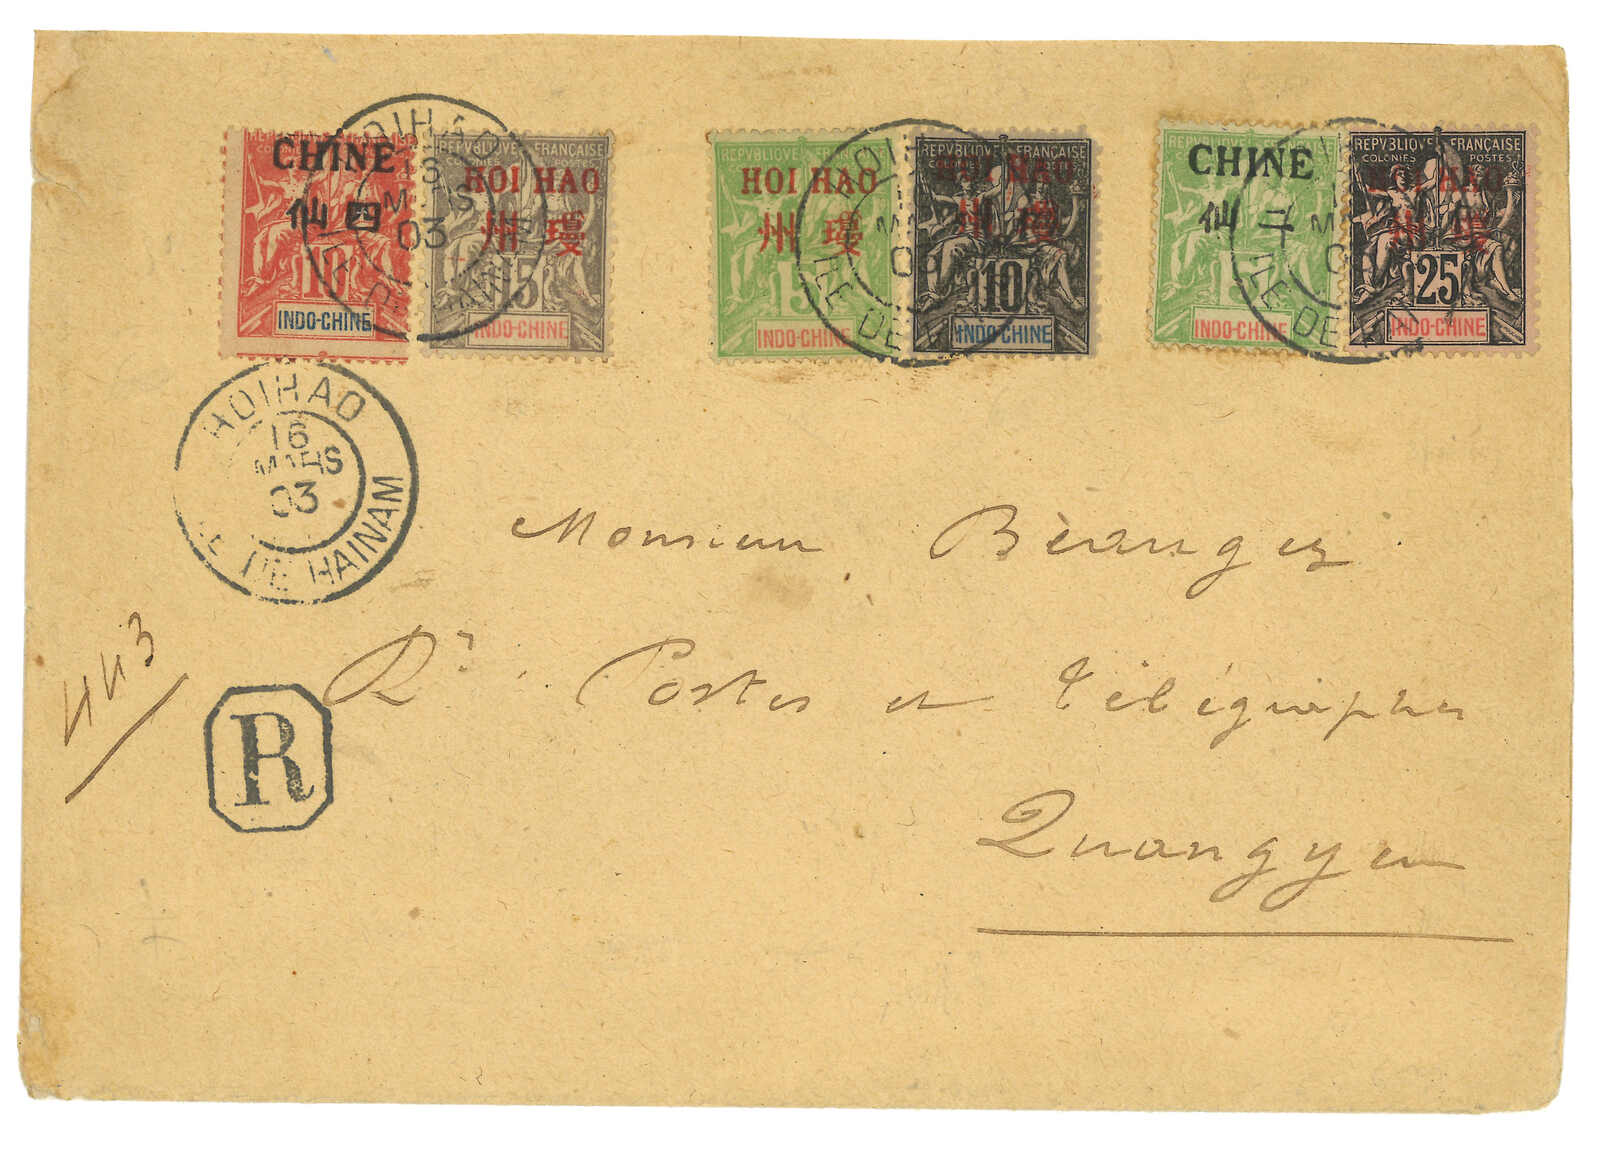 CHINE
仙四
10
INDO-CHINE
REPVBLIQVE FRANÇAISE
COLONIES POSTES
HOI HAO
州 瓊
15
INDO-CHINE
REPVBLIQVE
HOI HAO
州 瓊
INDO-CHINE
HOI HAO
州 瓊
10
INDO-CHINE
REPVBLIQVE FRANÇAISE
CHINE
仙
INDO-CHINE
REPVBLIQVE FRANÇAISE
COLONIES POSTES
HOI HAO
州 瓊
25
INDO-CHINE
HOIHAO
MARS
03
HOIHAO
16
MARS
03
ILE DE HAINAM
443
R
Monsieur Béranger
Rr Postes et Télégraphes
Quangyen